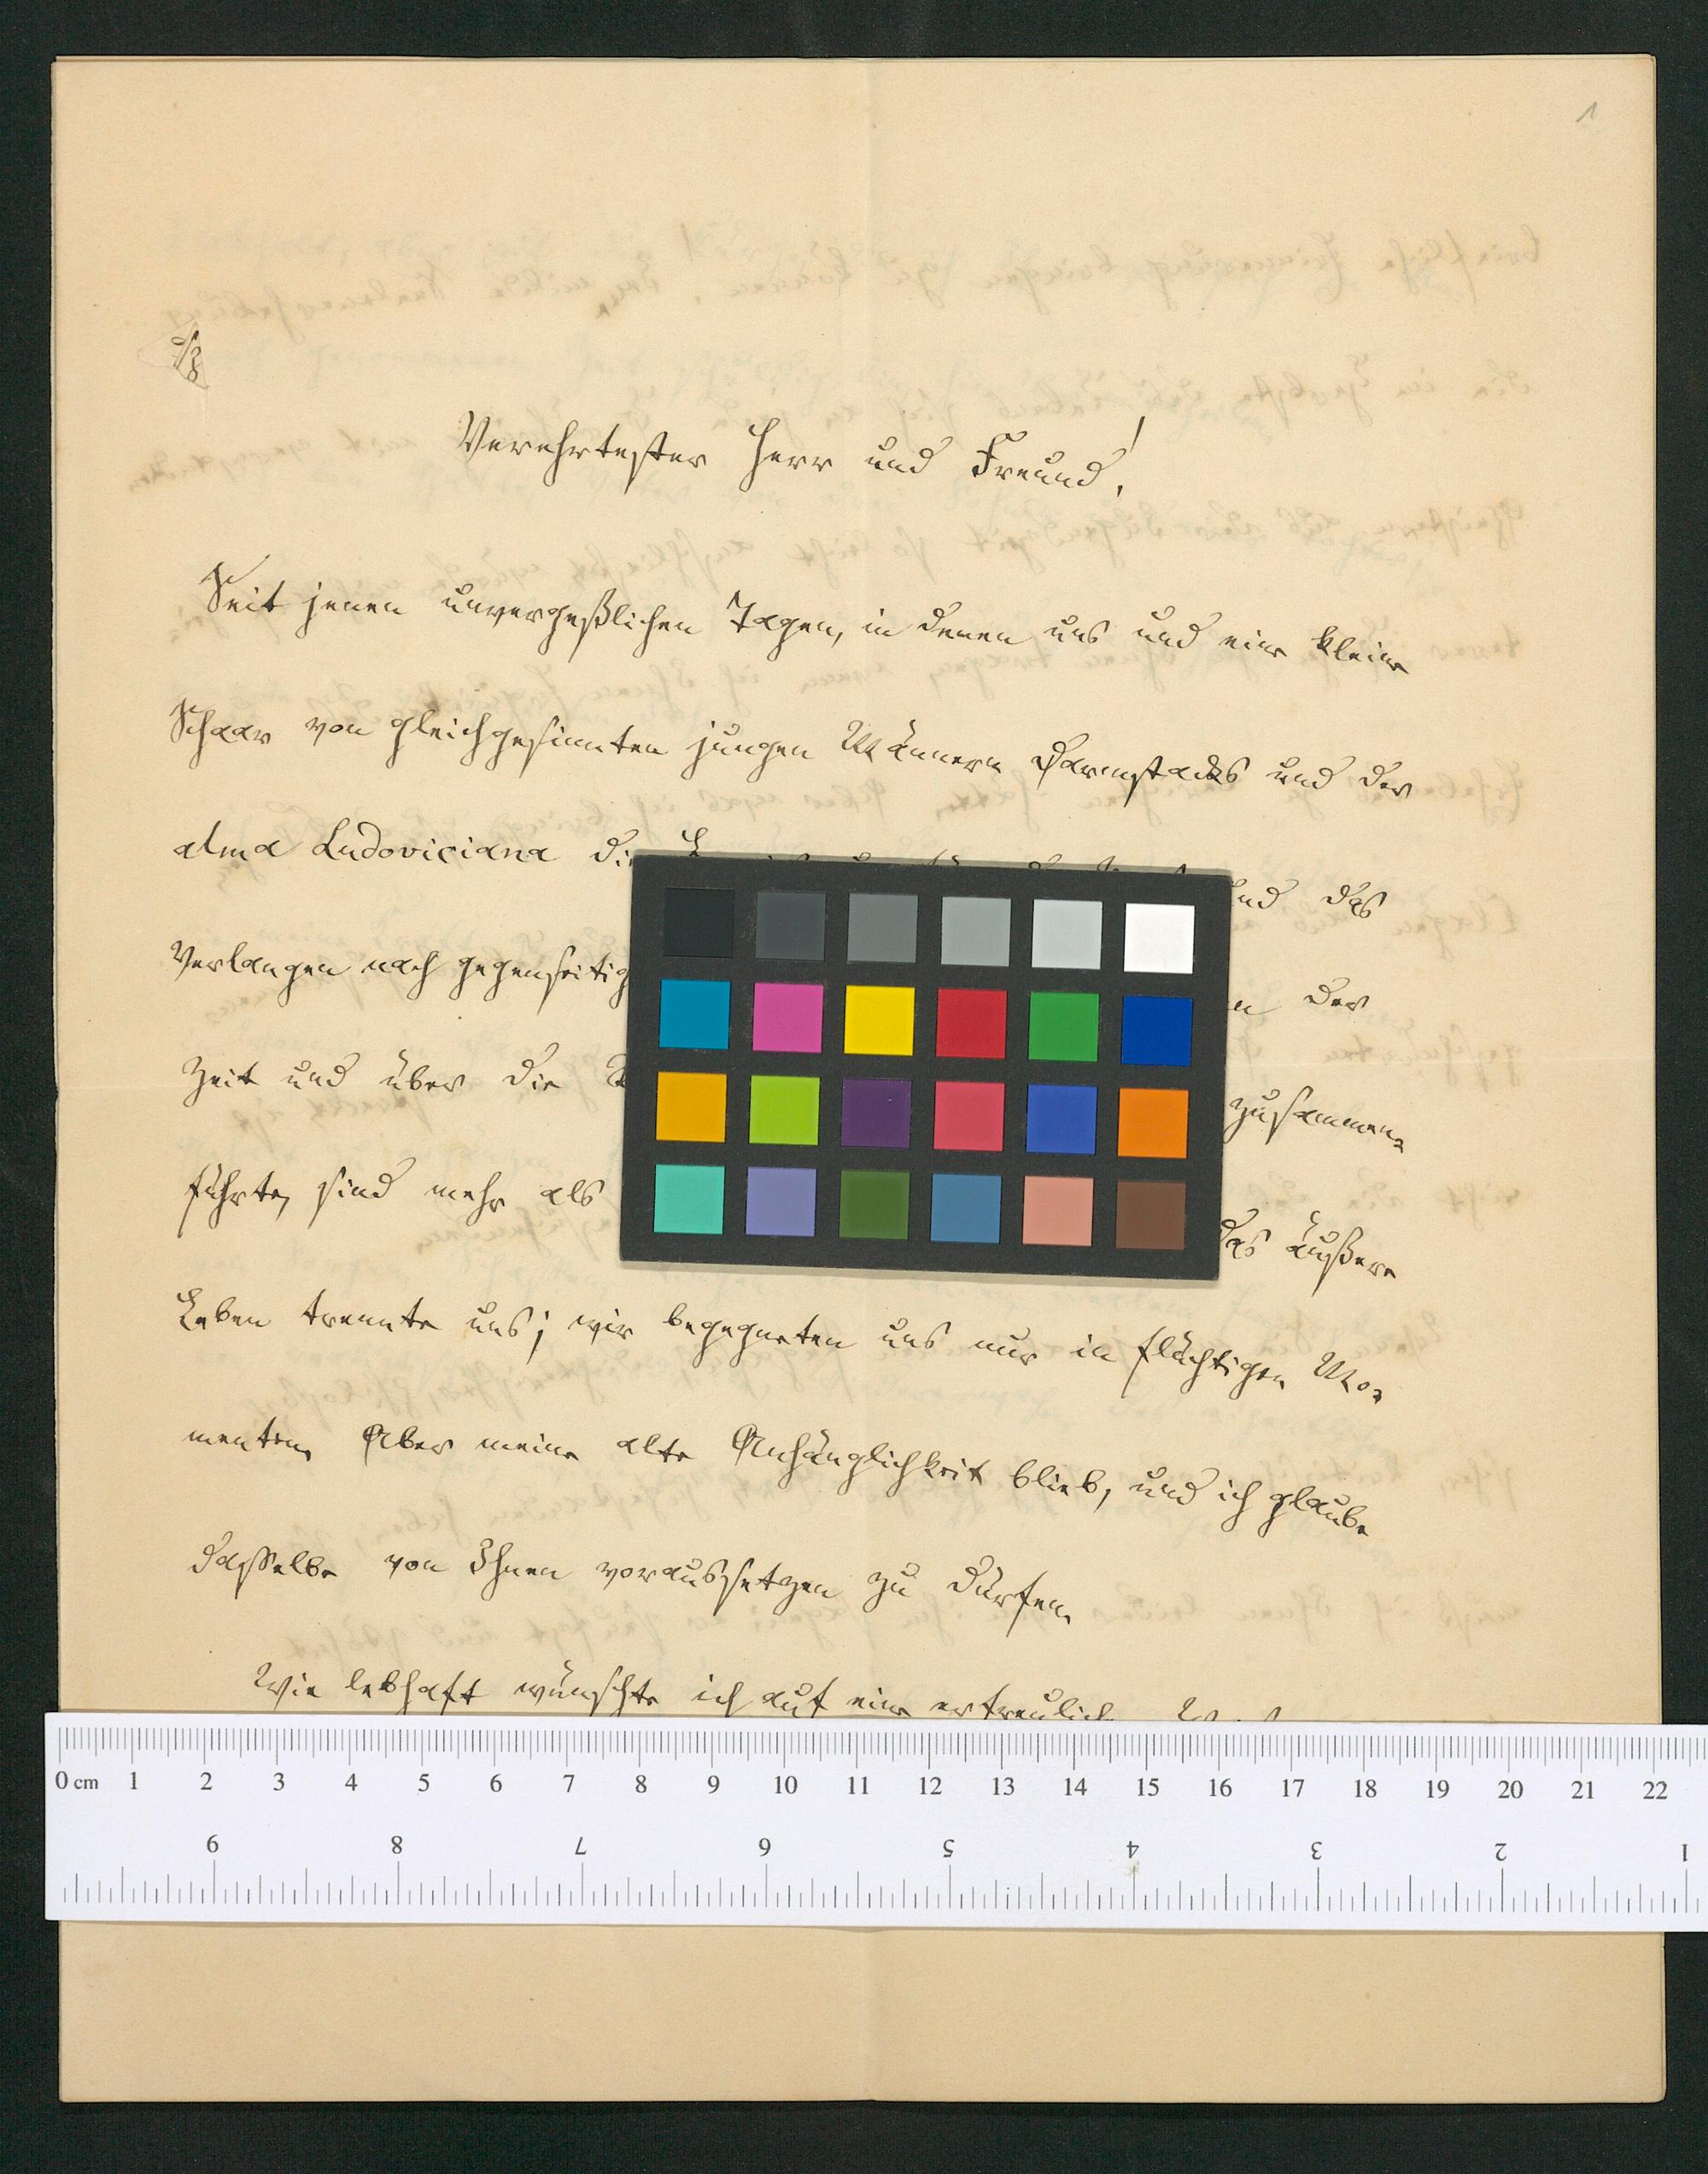 1
Verehrtester Herr und Freund!
Seit jenen unvergeßlichen Tagen, in denen uns und eine kleine
Schaar von gleichgesinnten jungen Männern Darmstadts und der
alma Ludoviciana die und das
Verlangen nach gegenseitig der
Zeit und über die zusammen-
führte, sind mehr als das äußere
Leben trennte uns; wir begegneten uns nur in flüchtigen Mo-
menten. Aber meine alte Anhänglichkeit blieb, und ich glaube
dasselbe von Ihnen voraussetzen zu dürfen.
Wie lebhaft wünschte ich auf eine erfreuliche
0 cm 1 2 3 4 5 6 7 8 9 10 11 12 13 14 15 16 17 18 19 20 21 22
9 8 7 6 5 4 3 2 1